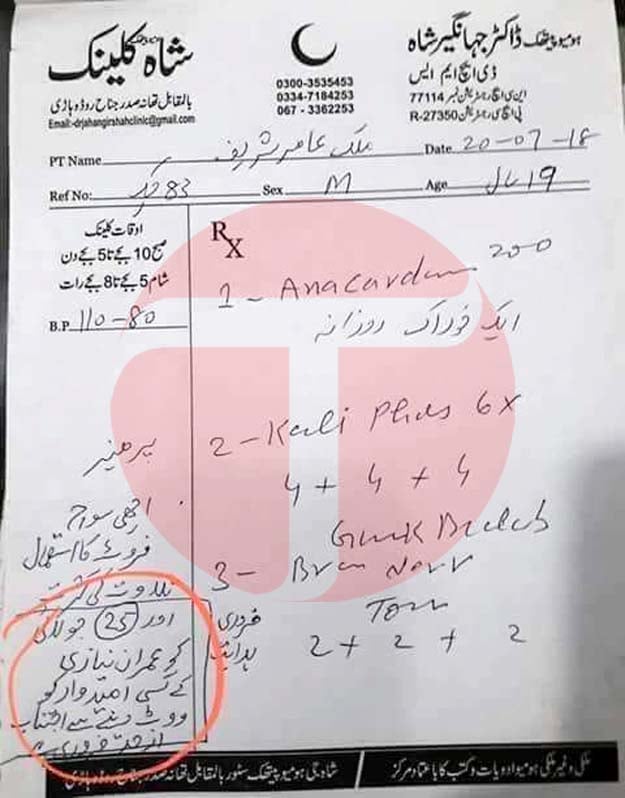 شاہ جی کلینک
بالمقابل تھانہ صدر جناح روڈ وہاڑی
Email:-drjahangirshahclinic@gmail.com
0300-3535453
0334-7184253
067 - 3362253
ہومیوپیتھک ڈاکٹر جہانگیر شاہ
ڈی ایچ ایم ایس
این سی ایچ رجسٹریشن نمبر 77114
پی ایچ سی رجسٹریشن R-27350
PT Name ملک عامر شریف Date 20-07-18
Ref No: 83 Sex M Age 19 سال
اوقات کلینک
صبح 10 بجے تا 5 بجے دن
شام 5 بجے تا 8 بجے رات
B.P 110-80
RX
1 - Anacardium 200
ایک خوراک روزانہ
2 - Kali Phos 6x
4 + 4 + 4
3 -
2 + 2 + 2
پرہیز
اچھی سوچ
فروٹ کا استعمال
تلاوت کی کثرت
اور 25 جولائی
کو عمران نیازی
کے کسی امیدوار کو
ووٹ دینے سے اجتناب
از حد ضروری ہے
ضروری
ہدایت
ملکی و غیر ملکی ہومیو ادویات و کتب کا بااعتماد مرکز
شاہ جی ہومیوپیتھک سٹور بالمقابل تھانہ صدر جناح روڈ وہاڑی